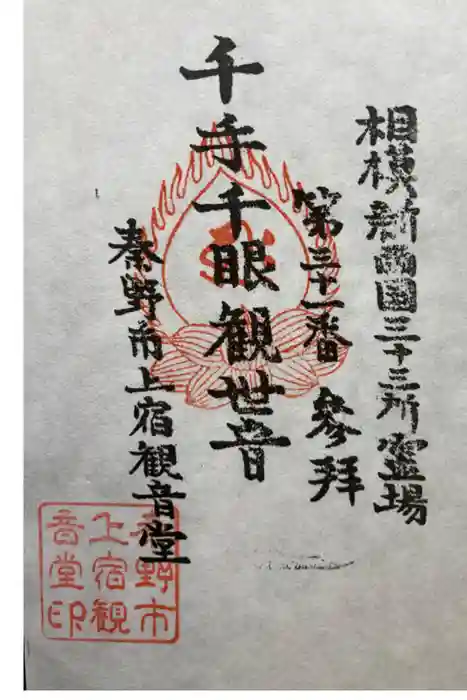 相模新西国三十三所霊場
第三十一番 参拝
千手千眼観世音
秦野市上宿観音堂
秦野市
上宿観
音堂印